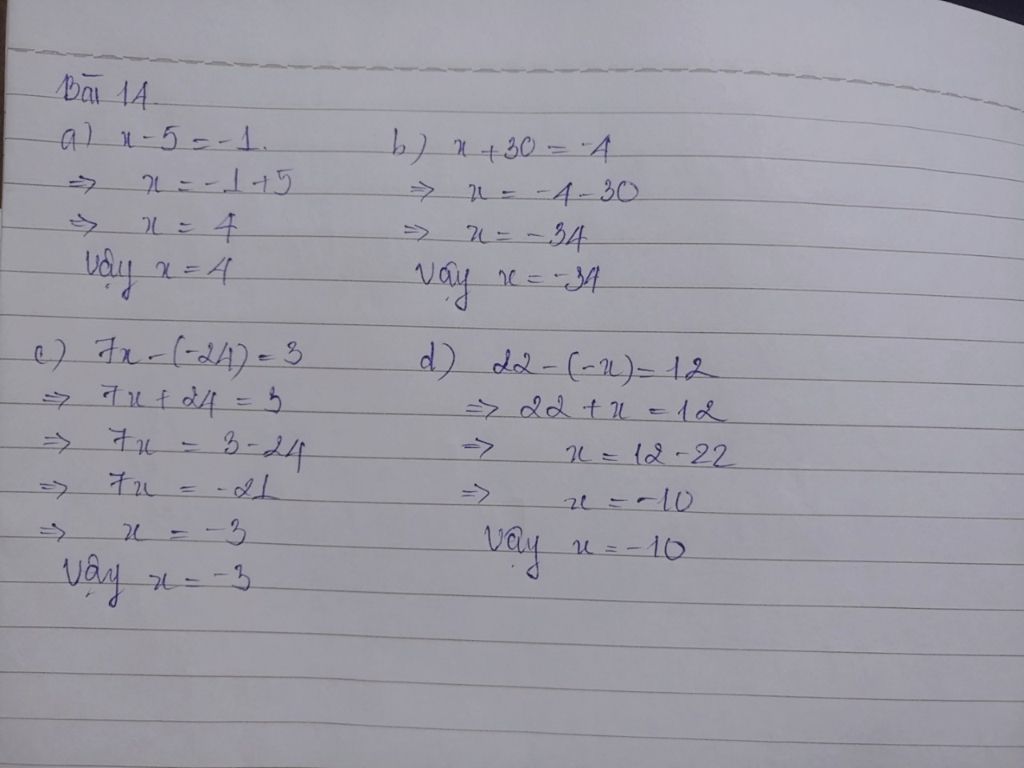 Bài 14
a) x - 5 = -1.
⇒ x = -1 + 5
⇒ x = 4
Vậy x = 4
b) x + 30 = -4
⇒ x = -4 - 30
⇒ x = -34
Vậy x = -34
c) 7x - (-24) = 3
⇒ 7x + 24 = 3
⇒ 7x = 3 - 24
⇒ 7x = -21
⇒ x = -3
Vậy x = -3
d) 22 - (-x) = 12
⇒ 22 + x = 12
⇒ x = 12 - 22
⇒ x = -10
Vậy x = -10